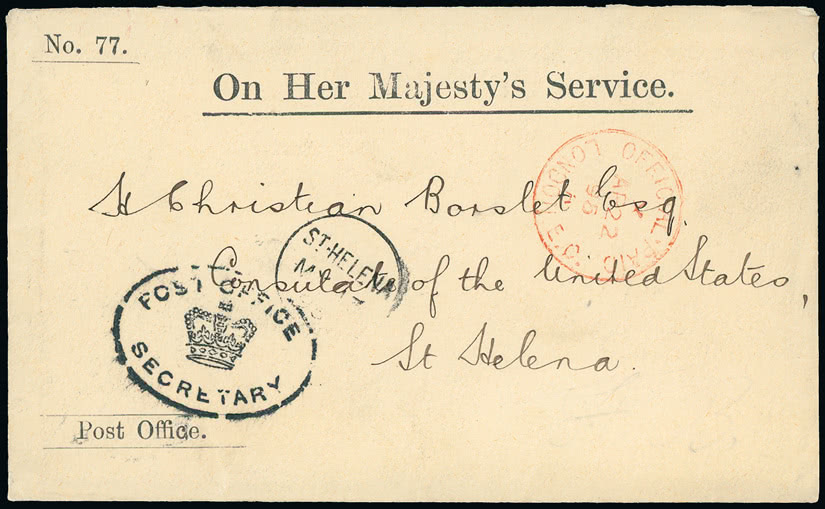 No. 77.
On Her Majesty's Service.
LONDON E.C. OFFICIAL PAID
AP 22
95
H Christian Borslet Esq.
ST. HELENA
Consulate of the United States,
POST OFFICE
SECRETARY
St Helena.
Post Office.